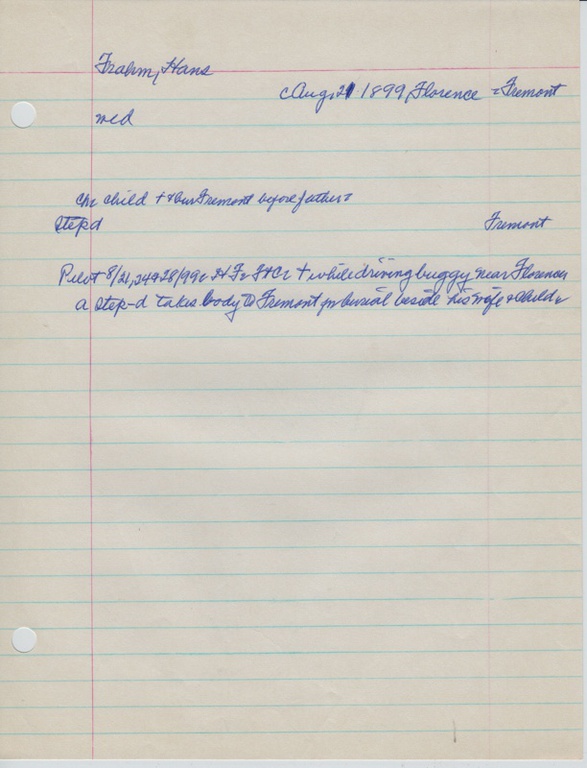 Frahm, Hans
c Aug. 21 1899, Florence - Fremont
md
ch child + + bur Fremont before father +
Step d
Fremont
Pilot 8/21, 24 & 28/99 + while driving buggy near Florence
a step-d takes body to Fremont for burial beside his wife & child.